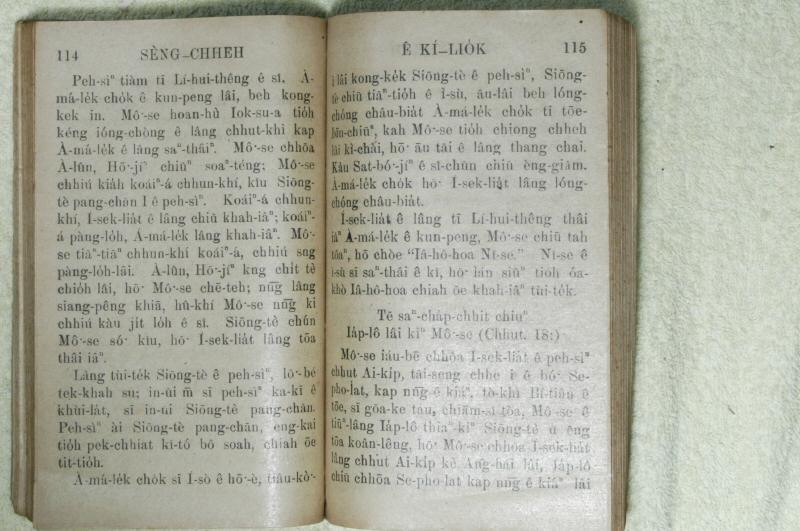 114 SÈNG-CHHEH
Peh-sìⁿ tiàm tī Lí-hui-thêng ê sî. À-
má-le̍k cho̍k ê kun-peng lâi, beh kong-
kek in. Mô͘-se hoan-hù Iok-su-a tio̍h
kéng ióng-chòng ê lâng chhut-khì kap
À-má-le̍k ê lâng saⁿ-thâiⁿ. Mô͘-se chhōa
À-lûn, Hō͘-jíⁿ chiūⁿ soaⁿ-téng; Mô͘-se
chhiú kia̍h koáiⁿ-á chhun-khí, kîu Siōng-
tè pang-chān I ê peh-sìⁿ. Koáiⁿ-á chhun-
khí, Í-sek-lia̍t ê lâng chiū khah-iâⁿ; koáiⁿ-
á pàng-lo̍h, À-má-le̍k lâng khah-iâⁿ. Mô͘-
se tiāⁿ-tiāⁿ chhun-khí koáiⁿ-á, chhiú sng
pàng-lo̍h-lâi. À-lûn, Hō͘-jíⁿ kng chi̍t tè
chio̍h lâi, hō͘ Mô͘-se chē-teh; nn̄g lâng
siang-pêng khiā, hû-khí Mô͘-se nn̄g ki
chhiú kàu ji̍t lo̍h ê sî. Siōng-tè chún
Mô͘-se só͘ kîu, hō͘ Í-sek-lia̍t lâng tōa
thâi iâⁿ.
Lâng tùi-te̍k Siōng-tè ê peh-sìⁿ, lō͘-bé
tek-khak su; in-ùi m̄ sī peh-sìⁿ ka-kī ê
khùi-la̍t, sī in-ùi Siōng-tè pang-chān.
Peh-sìⁿ ài Siōng-tè pang-chān, eng-kai
tio̍h pek-chhiat kî-tó bô soah, chiah ōe
tit-tio̍h.
À-má-le̍k cho̍k sī Í-sò ê hō͘-è, tiâu-kò͘-
Ê KÍ-LIO̍K 115
î lâi kong-kek Siōng-tè ê peh-sìⁿ, Siōng-
tè chiū tiāⁿ-tio̍h ê ì-sù, āu-lâi beh lóng-
chóng châu-bia̍t À-má-le̍k cho̍k tī tōe-
bīn-chiūⁿ, kah Mô͘-se tio̍h chiong chheh
lâi kì-chài, hō͘ āu tāi ê lâng thang chai.
Kàu Sat-bó͘-jíⁿ ê sî-chūn chiū èng-giām.
À-má-le̍k cho̍k hō͘ Í-sek-lia̍t lâng lóng-
chóng châu-bia̍t.
Í-sek-lia̍t ê lâng tī Lí-hui-thêng thâi
iâⁿ À-má-le̍k ê kun-peng, Mô͘-se chiū tah
tôaⁿ, hō chòe “Iâ-hô-hoa Nî-se.” Nî-se ê
ì-sù sī saⁿ-thâi ê kî, hō͘ lán siūⁿ tio̍h óa-
khò Iâ-hô-hoa chiah ōe khah-iâⁿ tùi-te̍k.
Tē saⁿ-cha̍p-chhit chiuⁿ
Ia̍p-lô lâi kìⁿ Mô͘-se (Chhut. 18:)
Mô͘-se iáu-bē chhōa Í-sek-lia̍t ê peh-sìⁿ
chhut Ai-ki̍p, tāi-seng chhe i ê bó͘ Se-
pho-lat, kap nn̄g ê kiáⁿ, tò-khì Bí-tiân ê
tōe, sī gōa-ke tau, chiām-sî tòa, Mô͘-se ê
tiūⁿ-lâng Ia̍p-lô thiaⁿ-kìⁿ Siōng-tè ū êng
tōa koân-lêng, hō͘ Mô͘-se chhōa Í-sek-lia̍t
lâng chhut Ai-ki̍p kè Âng-hái lâi, Ia̍p-lô
chiū chhōa Se-pho-lat kap nn̄g ê kiáⁿ lâi